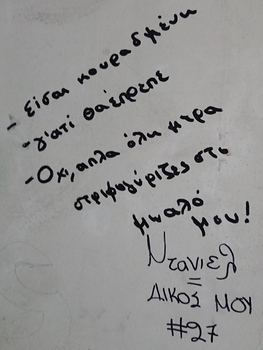 - είσαι κουρασμένη
- γιατί θα έπρεπε
- Όχι, απλα όλη μερα
στριφογύριζες στο
μυαλό
μου!
Ντανιελ
=
ΔΙΚΟΣ ΜΟΥ
#27